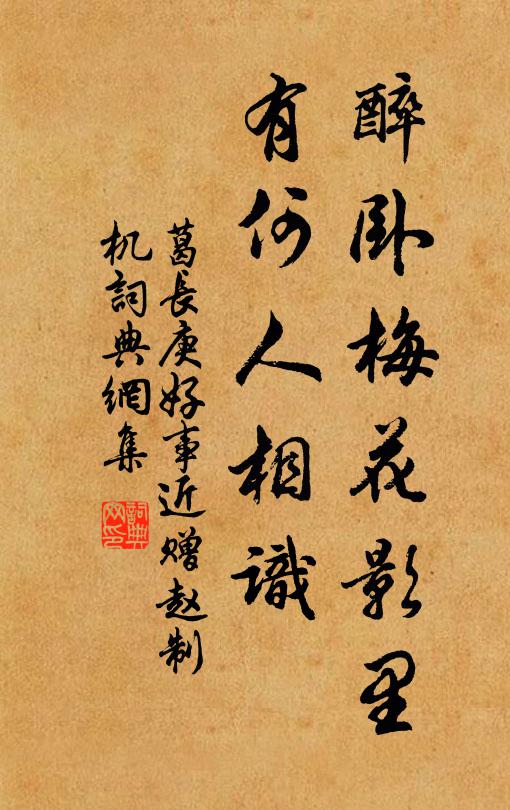 醉卧梅花影里
有何人相識
葛長庚好事近赠赵制
机詞典網集
詞典网印